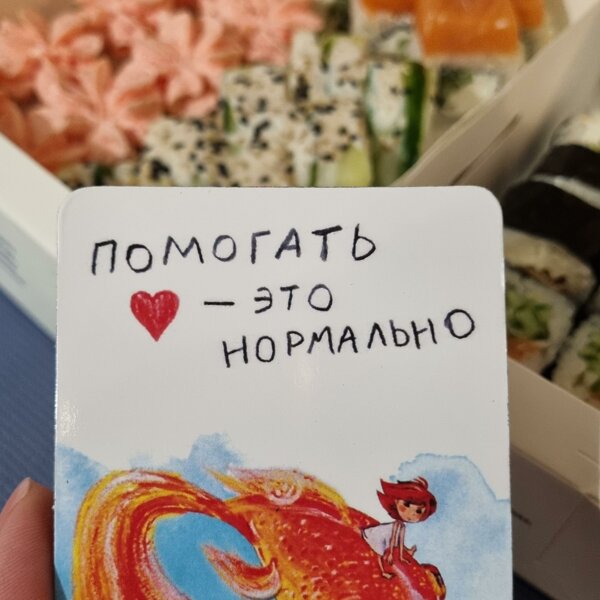 ПОМОГАТЬ
— ЭТО
НОРМАЛЬНО